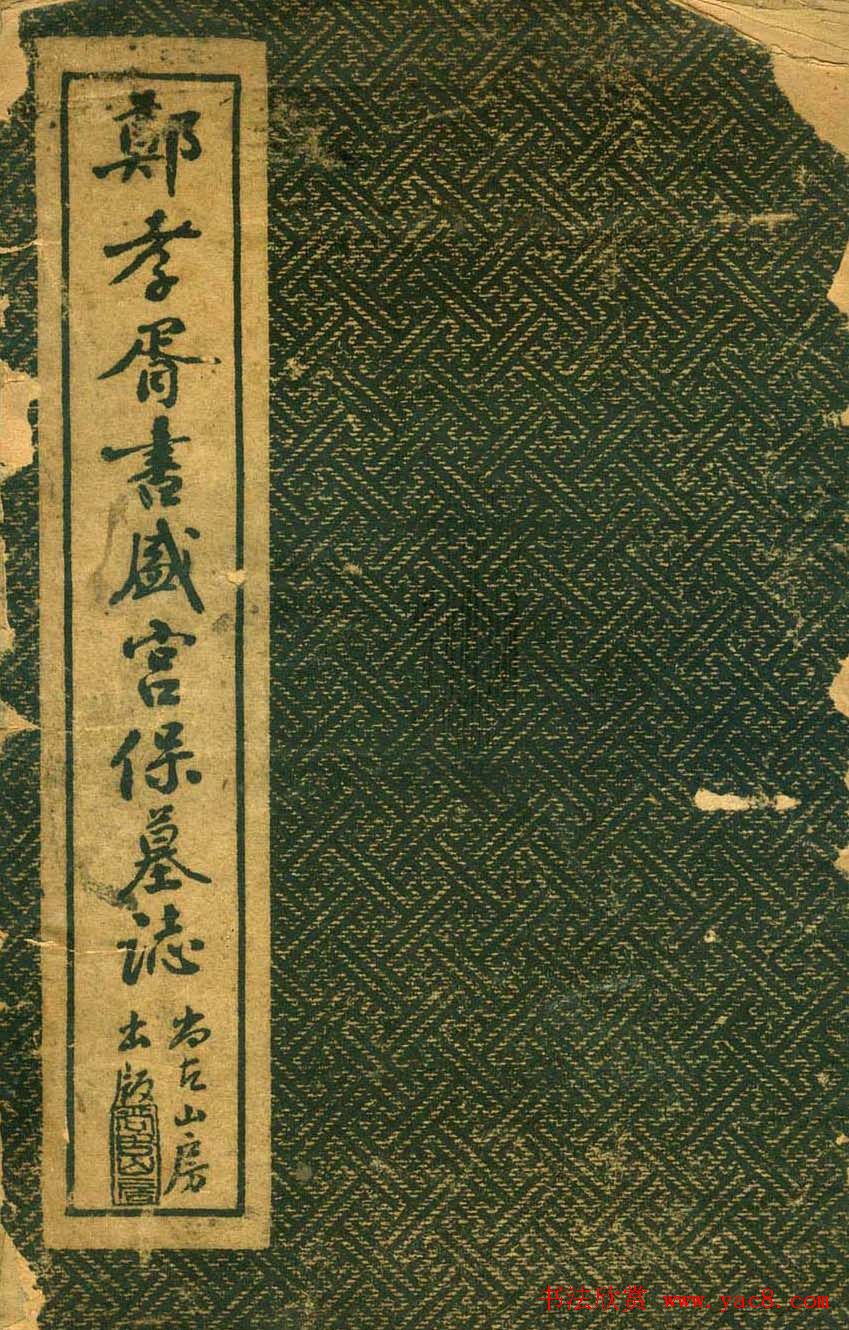 鄭孝胥書盛宮保墓誌
尚古山房
出版
书法欣赏 www.yac8.com